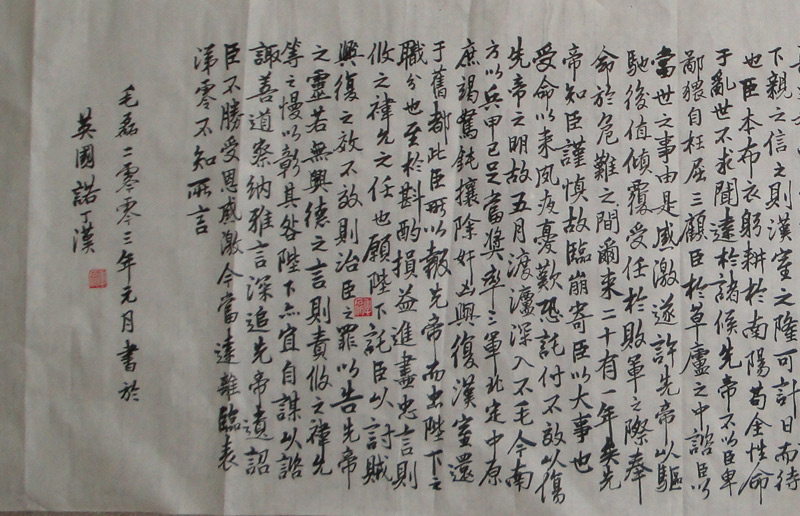 下親之信之則漢室之隆可計日而待
也臣本布衣躬耕於南陽苟全性命
于亂世不求聞達於諸候先帝不以臣卑
鄙猥自枉屈三顧臣於草廬之中諮臣以
當世之事由是感激遂許先帝以驅
馳後值傾覆受任於敗軍之際奉
命於危難之間爾來二十有一年矣先
帝知臣謹慎故臨崩寄臣以大事也
受命以來夙夜憂歎恐託付不效以傷
先帝之明故五月渡瀘深入不毛今南
方以兵甲已足當獎率三軍北定中原
庶竭駑鈍攘除奸凶興復漢室還
于舊都此臣所以報先帝而忠陛下之
職分也至於斟酌損益進盡忠言則
攸之禕允之任也願陛下託臣以討賊
興復之效不效則治臣之罪以告先帝
之靈若無興德之言則責攸之禕允
等之慢以彰其咎陛下亦宜自謀以諮
諏善道察納雅言深追先帝遺詔
臣不勝受恩感激今當遠離臨表
涕零不知所言
毛磊二零零三年元月書於
英國諾丁漢